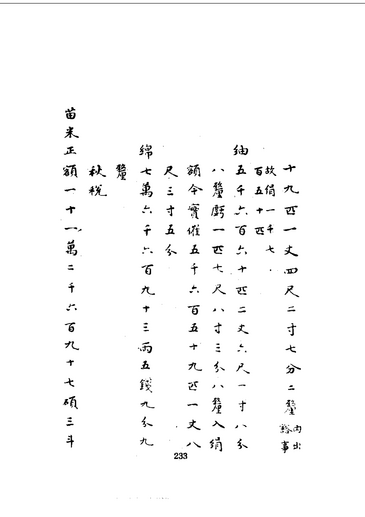 十九匹一丈四尺二寸七分二釐內出豁事
故絹一千七百五十匹
紬五千六百六十匹二丈六尺一寸八分
八釐虧一匹七尺八寸三分八釐入絹
額今實催五千六百五十九匹一丈八
尺三寸五分
綿七萬六千六百九十三兩五錢九分九
釐
秋稅
苗米正額一十一萬二千六百九十七碩三斗
233